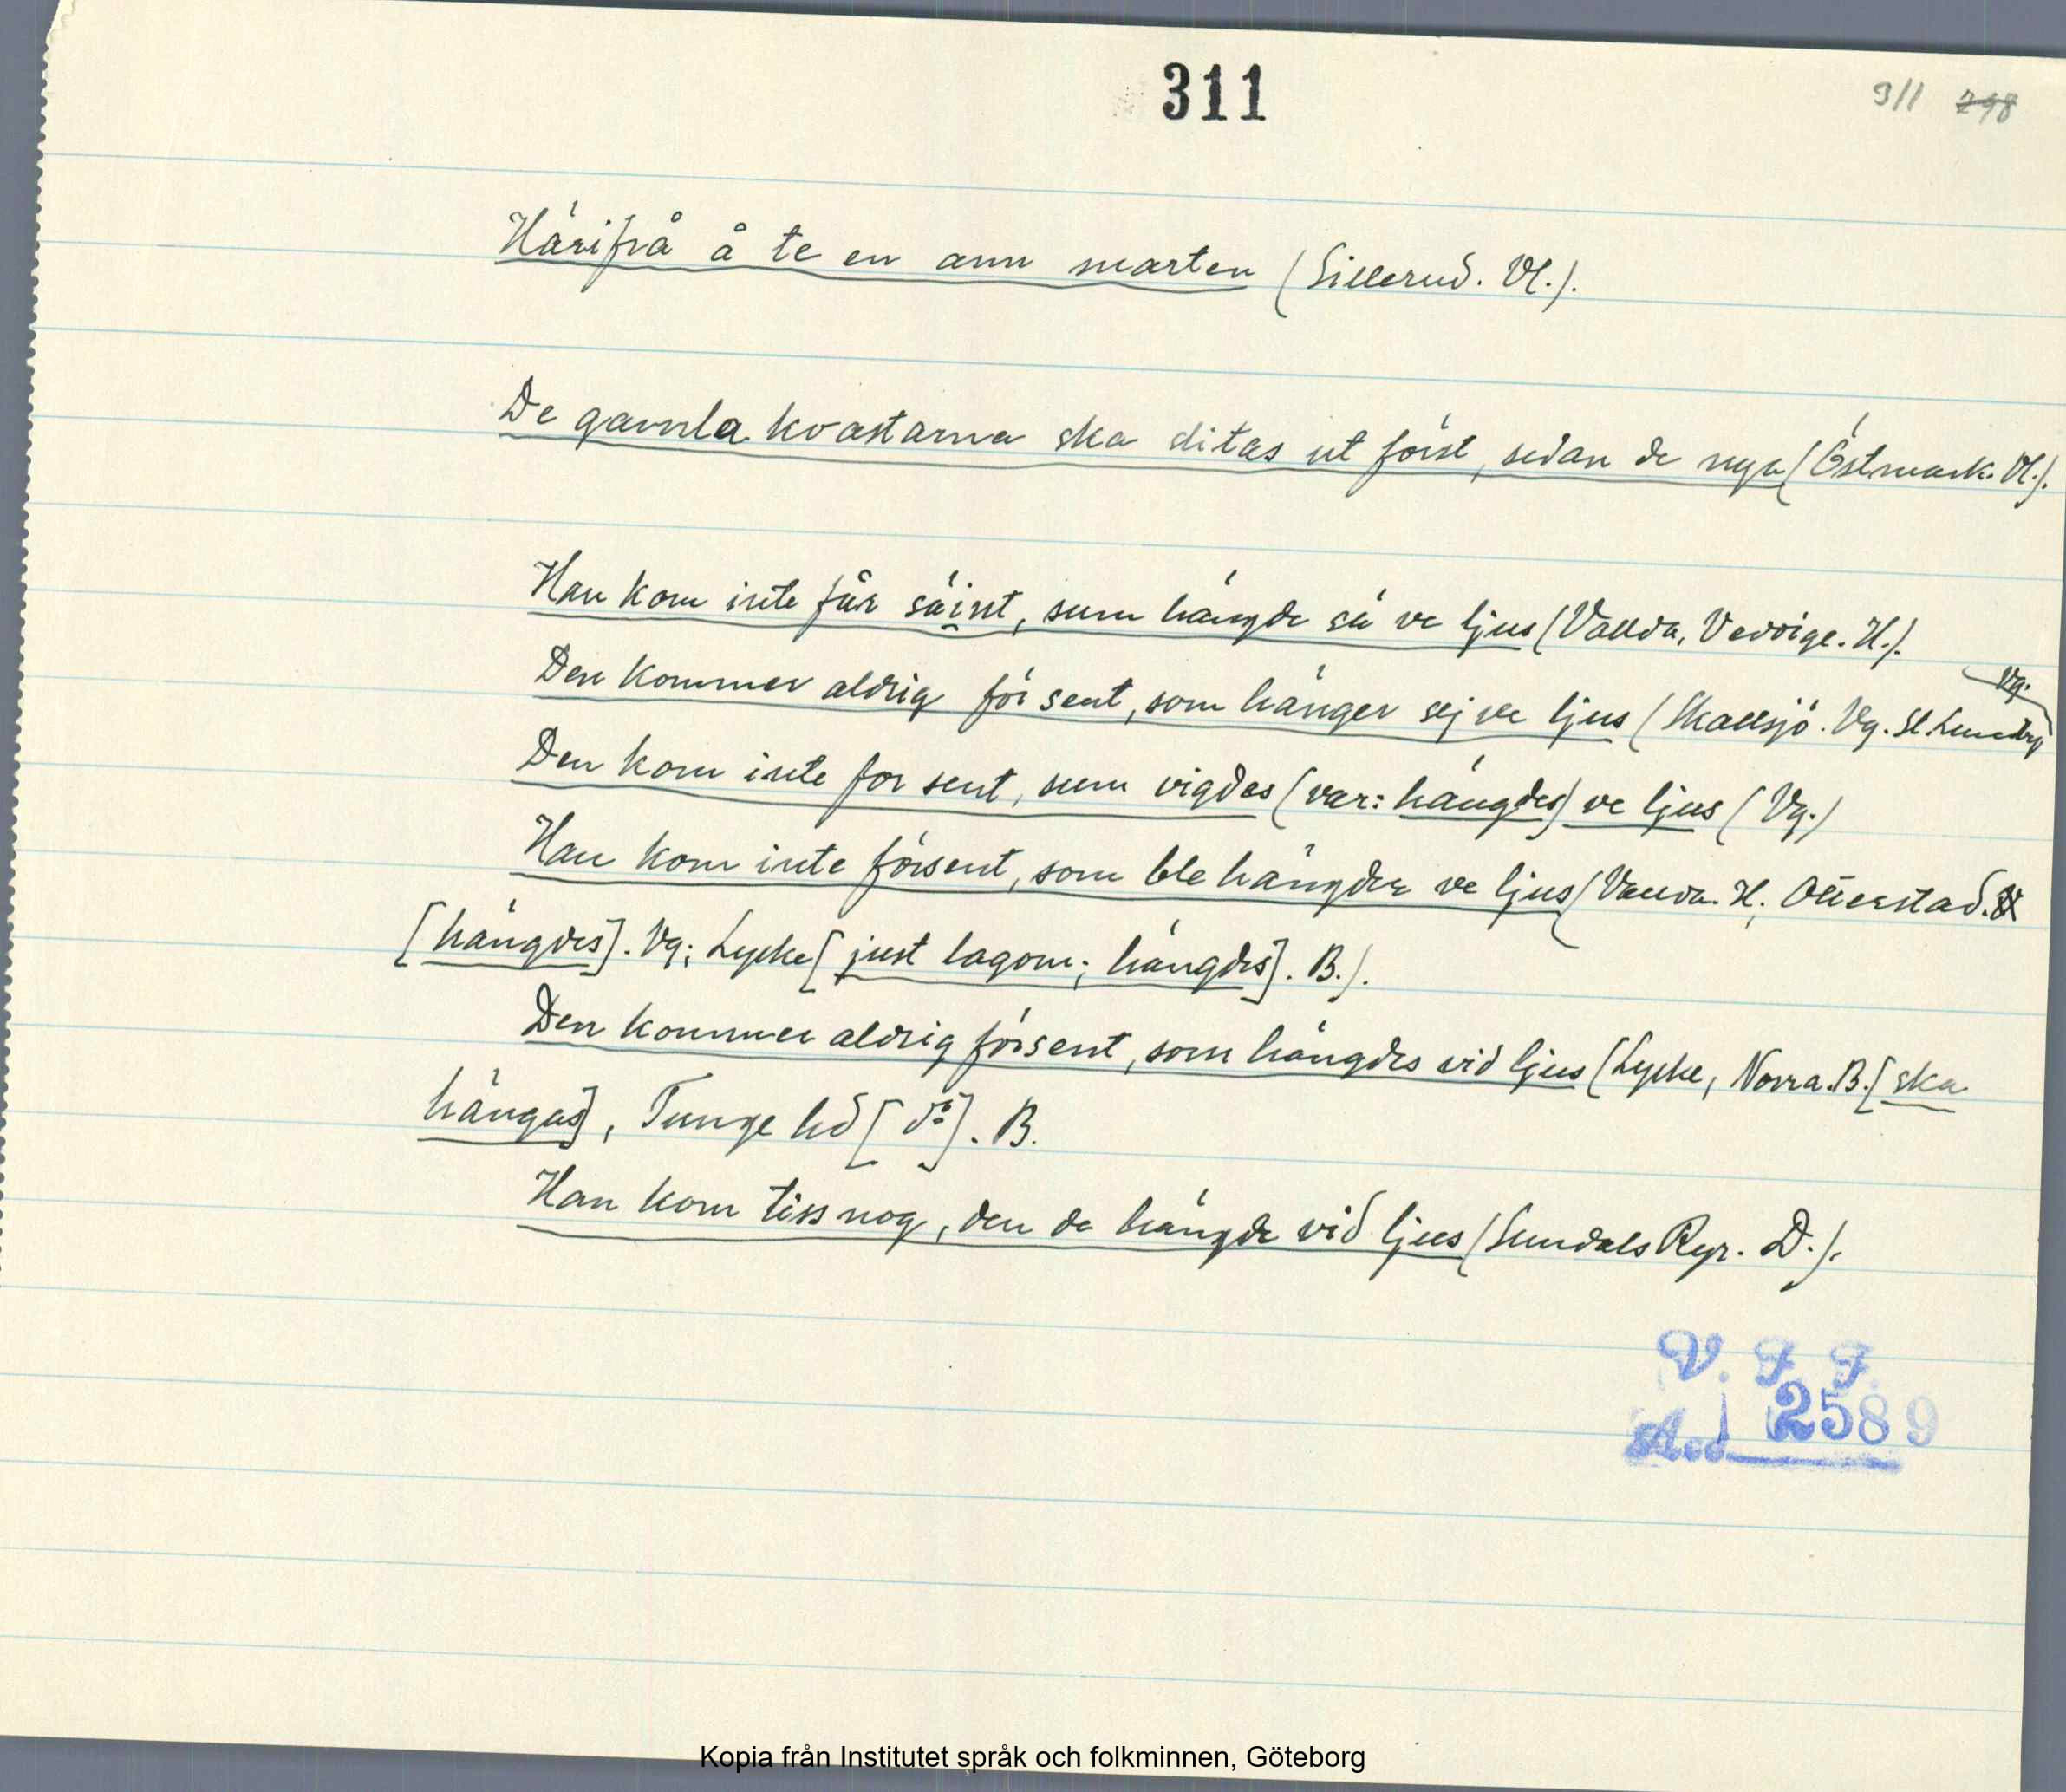 311
311 298
Härifrå å te en ann marten (Sillerud. Vl.).
De gamla kvastarna ska slitas ut först, sedan de nya (Östmark. Vl.).
Han kom inte får säint, sum hängde sä ve ljus (Vallda, Veddige. H.).
Den kommer aldrig för sent, som hänger sej ve ljus (Skallsjö. Vg. St. Lundby Vg.
Den kom inte for sent, sum vigdes (var: hängdes) ve ljus (Vg.)
Han kom inte försent, som ble hängder ve ljus (Vallda. H., Otterstad.
[hängdes]. Vg; Lycke [just lagom; hängdes]. B.).
Den kommer aldrig försent, som hängdes vid ljus (Lycke, Norra. B. [ska
hängas], Tunge hd [d:o]. B.
Han kom tiss nog, den de hängde vid ljus (Sundals Ryr. D.).
V. F. F.
Acc 2589
Kopia från Institutet språk och folkminnen, Göteborg